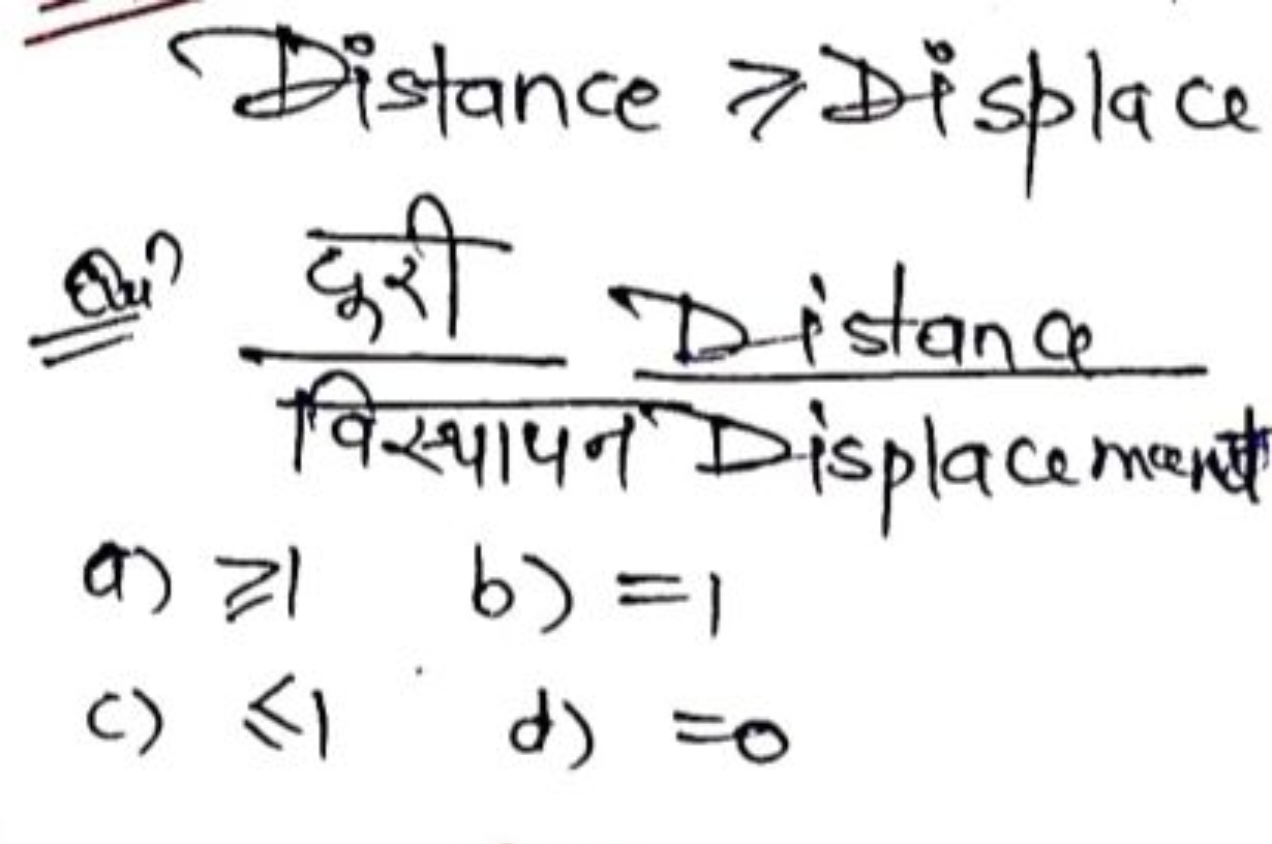 Distance ⩾ Displace
Qu? दूरी Distance
विस्थापन Displacement
a) ⩾1 b) =1
c) ⩽1 d) =0